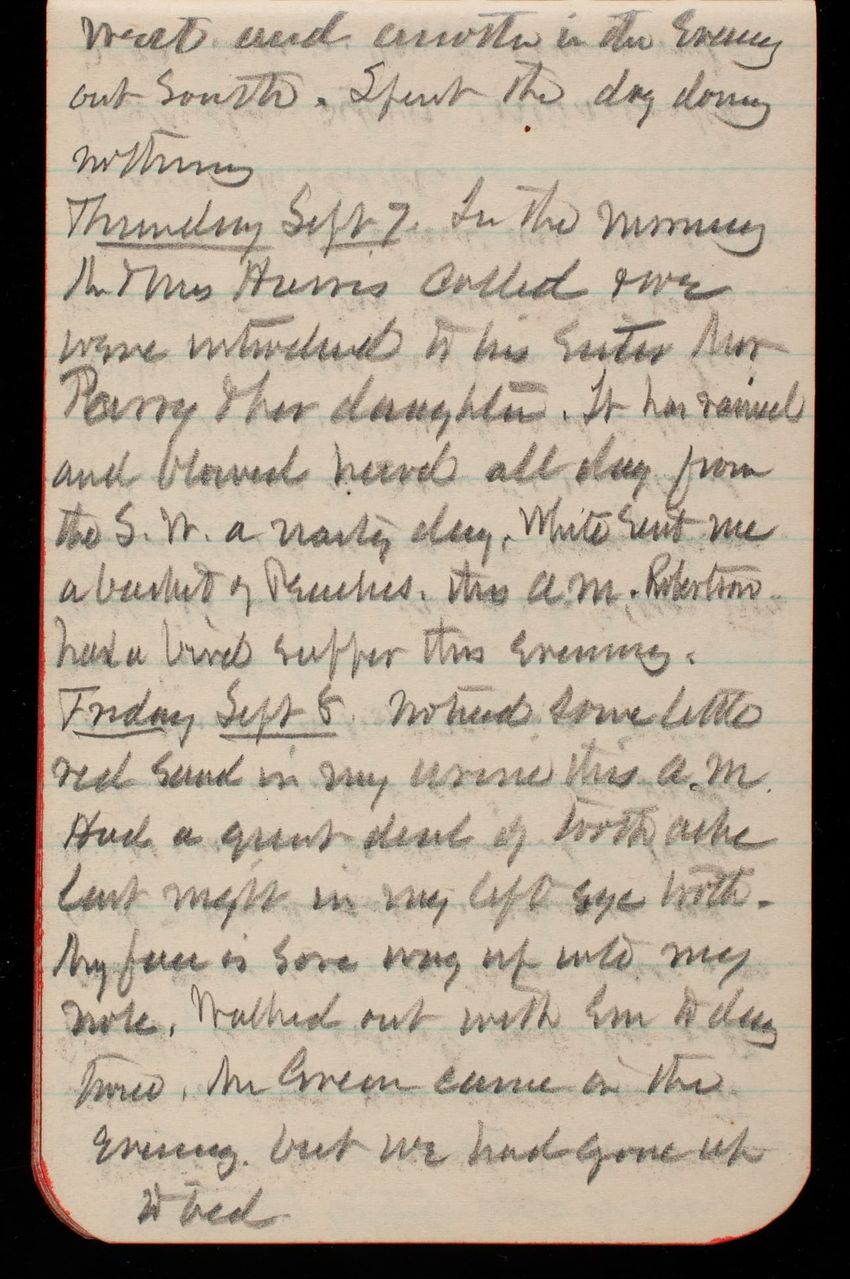 West and another in the Evening
out South. Spent the day doing
nothing
Thursday Sept 7. In the morning
Mr & Mrs Harris called & we
were introduced to his sister Mrs
Parry & her daughter. It has rained
and blowed hard all day from
the S. W. a nasty day. White sent me
a basket of Peaches. this A.M. Robertson
had a bird supper this evening.
Friday Sept 8. Noticed some little
red sand in my urine this A.M.
Had a great deal of tooth ache
last night in my left eye tooth.
My face is sore way up into my
nose. Walked out with Em to day
twice. Mr Green came in the
Evening. but we had gone up
to bed